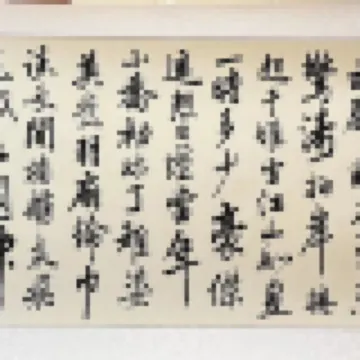 驚濤拍岸捲
起千堆雪江山如畫
一時多少豪傑
遙想公瑾當年
小喬初嫁了雄姿
英發羽扇綸巾
談笑間檣櫓灰飛
國神